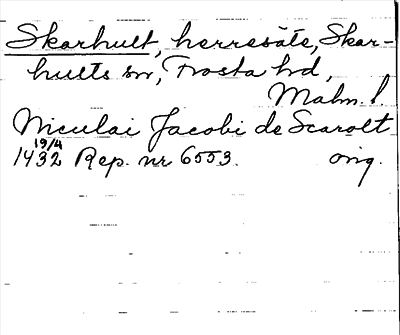 Skarhult, herresäte, Skar-
hults sn, Frosta hd,
Malm. l.
Niculai Jacobi de Scarolt
19/4
1432 Rep. nr 6553. orig.